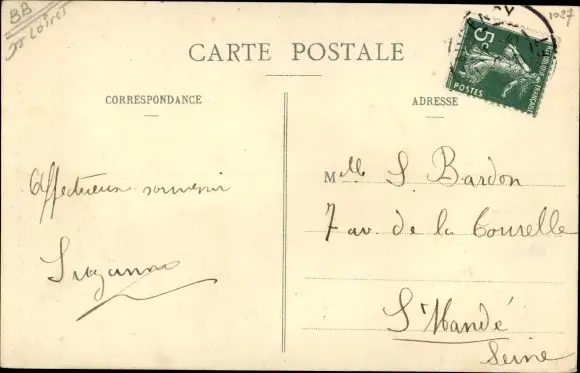 BB
Loiret
1027
CARTE POSTALE
5c
POSTES
CORRESPONDANCE
ADRESSE
Affectueux souvenir
Suzanne
Mlle S. Bardon
7 av. de la Tourelle
St Mandé
Seine